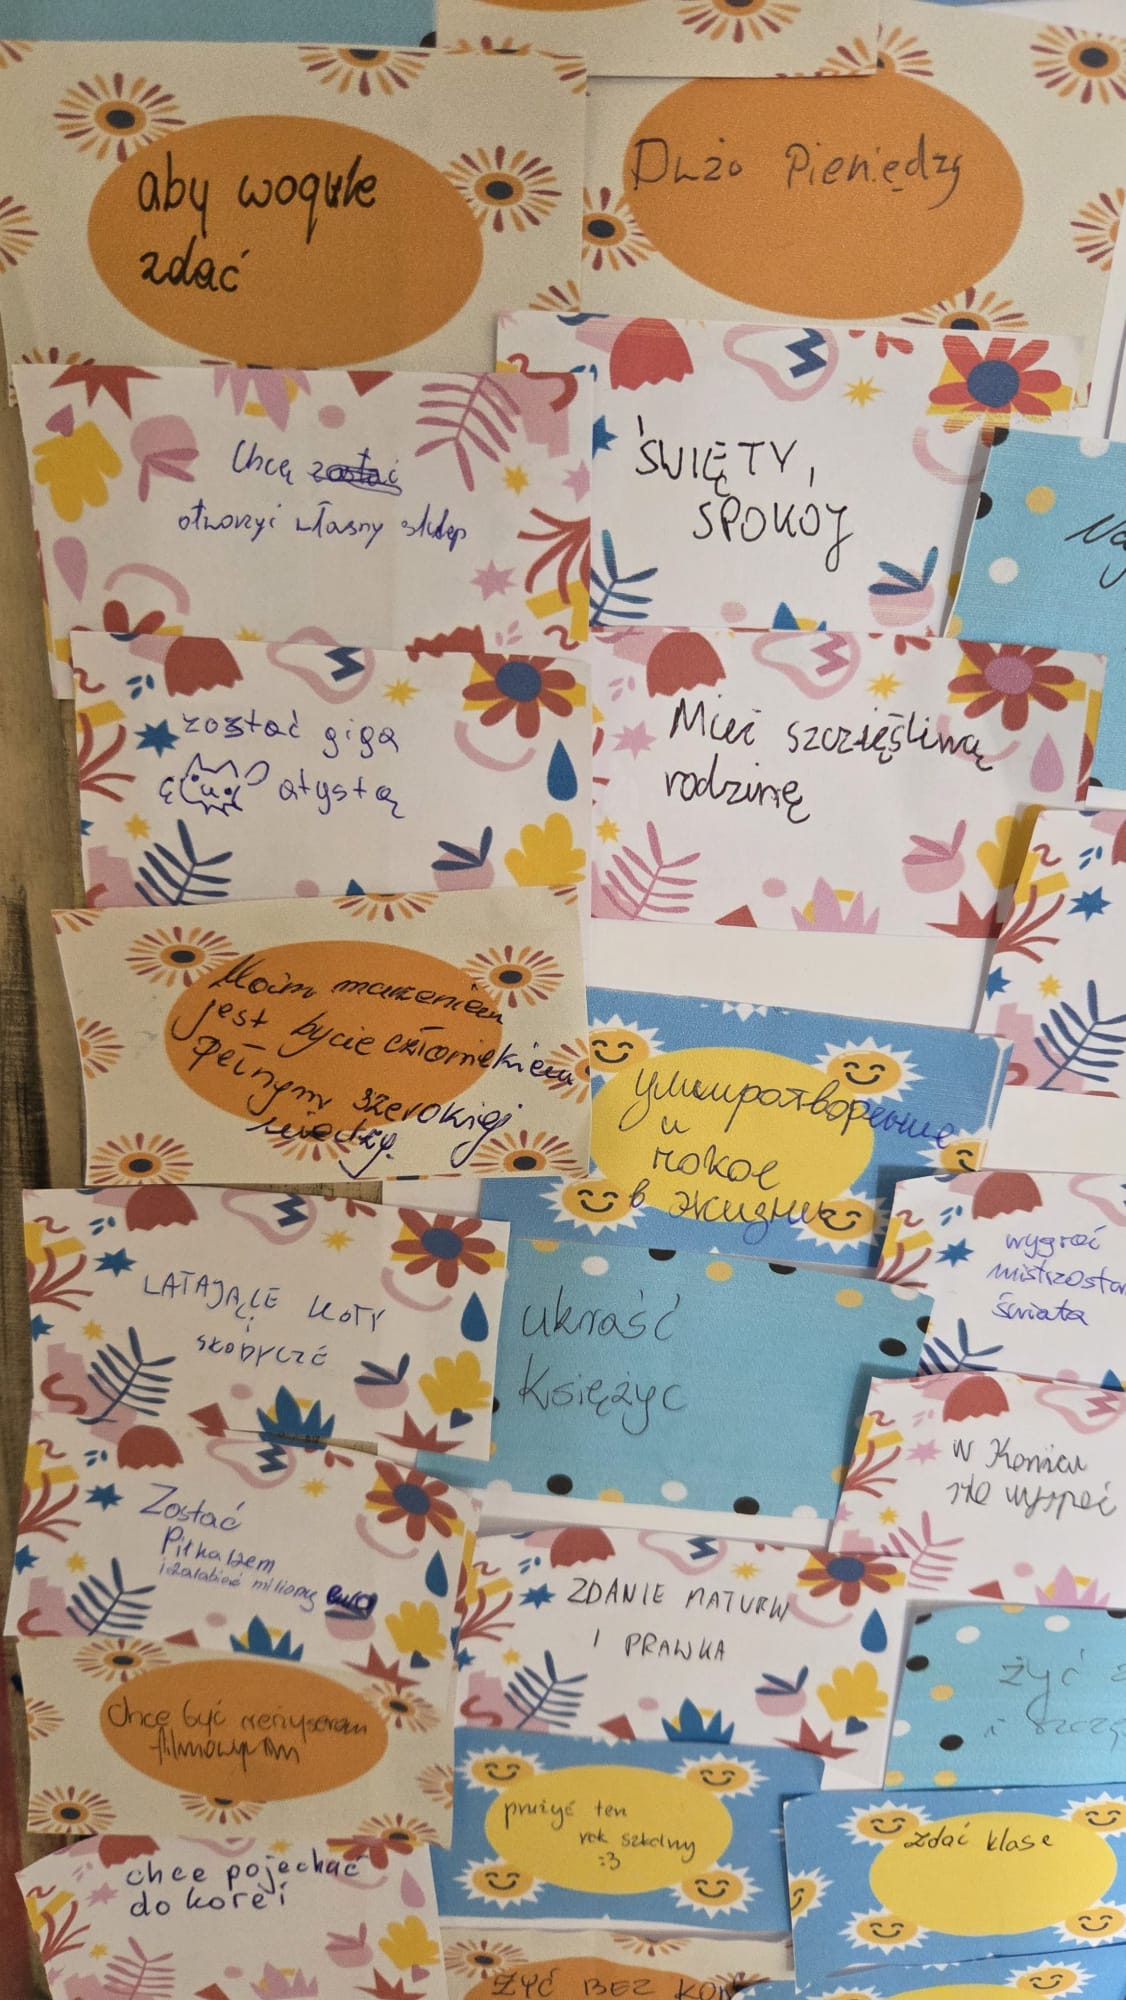 aby wogule
zdać
Dużo Pieniędzy
Chcę zostać
otworzyć własny sklep
ŚWIĘTY,
SPOKÓJ
zostać giga
atystą
Mieć szczięśliwą
rodzinę
Moim marzeniem
jest bycie człowiekiem
pełnym szerokiej
wiedzy.
умиротворение
и
покое
в жизни
LATAJĄCE KOTY
ukraść
Księżyc
wygrać
świata
W Końcu
się wyspać
Zostać
Piłkarzem
i zarabiać miliony euro
ZDANIE MATURY
I PRAWKA
żyć
i
chce być reżyserem
filmowym
przeżyć ten
rok szkolny
:3
zdać klase
chce pojechać
do korei
ŻYĆ BEZ